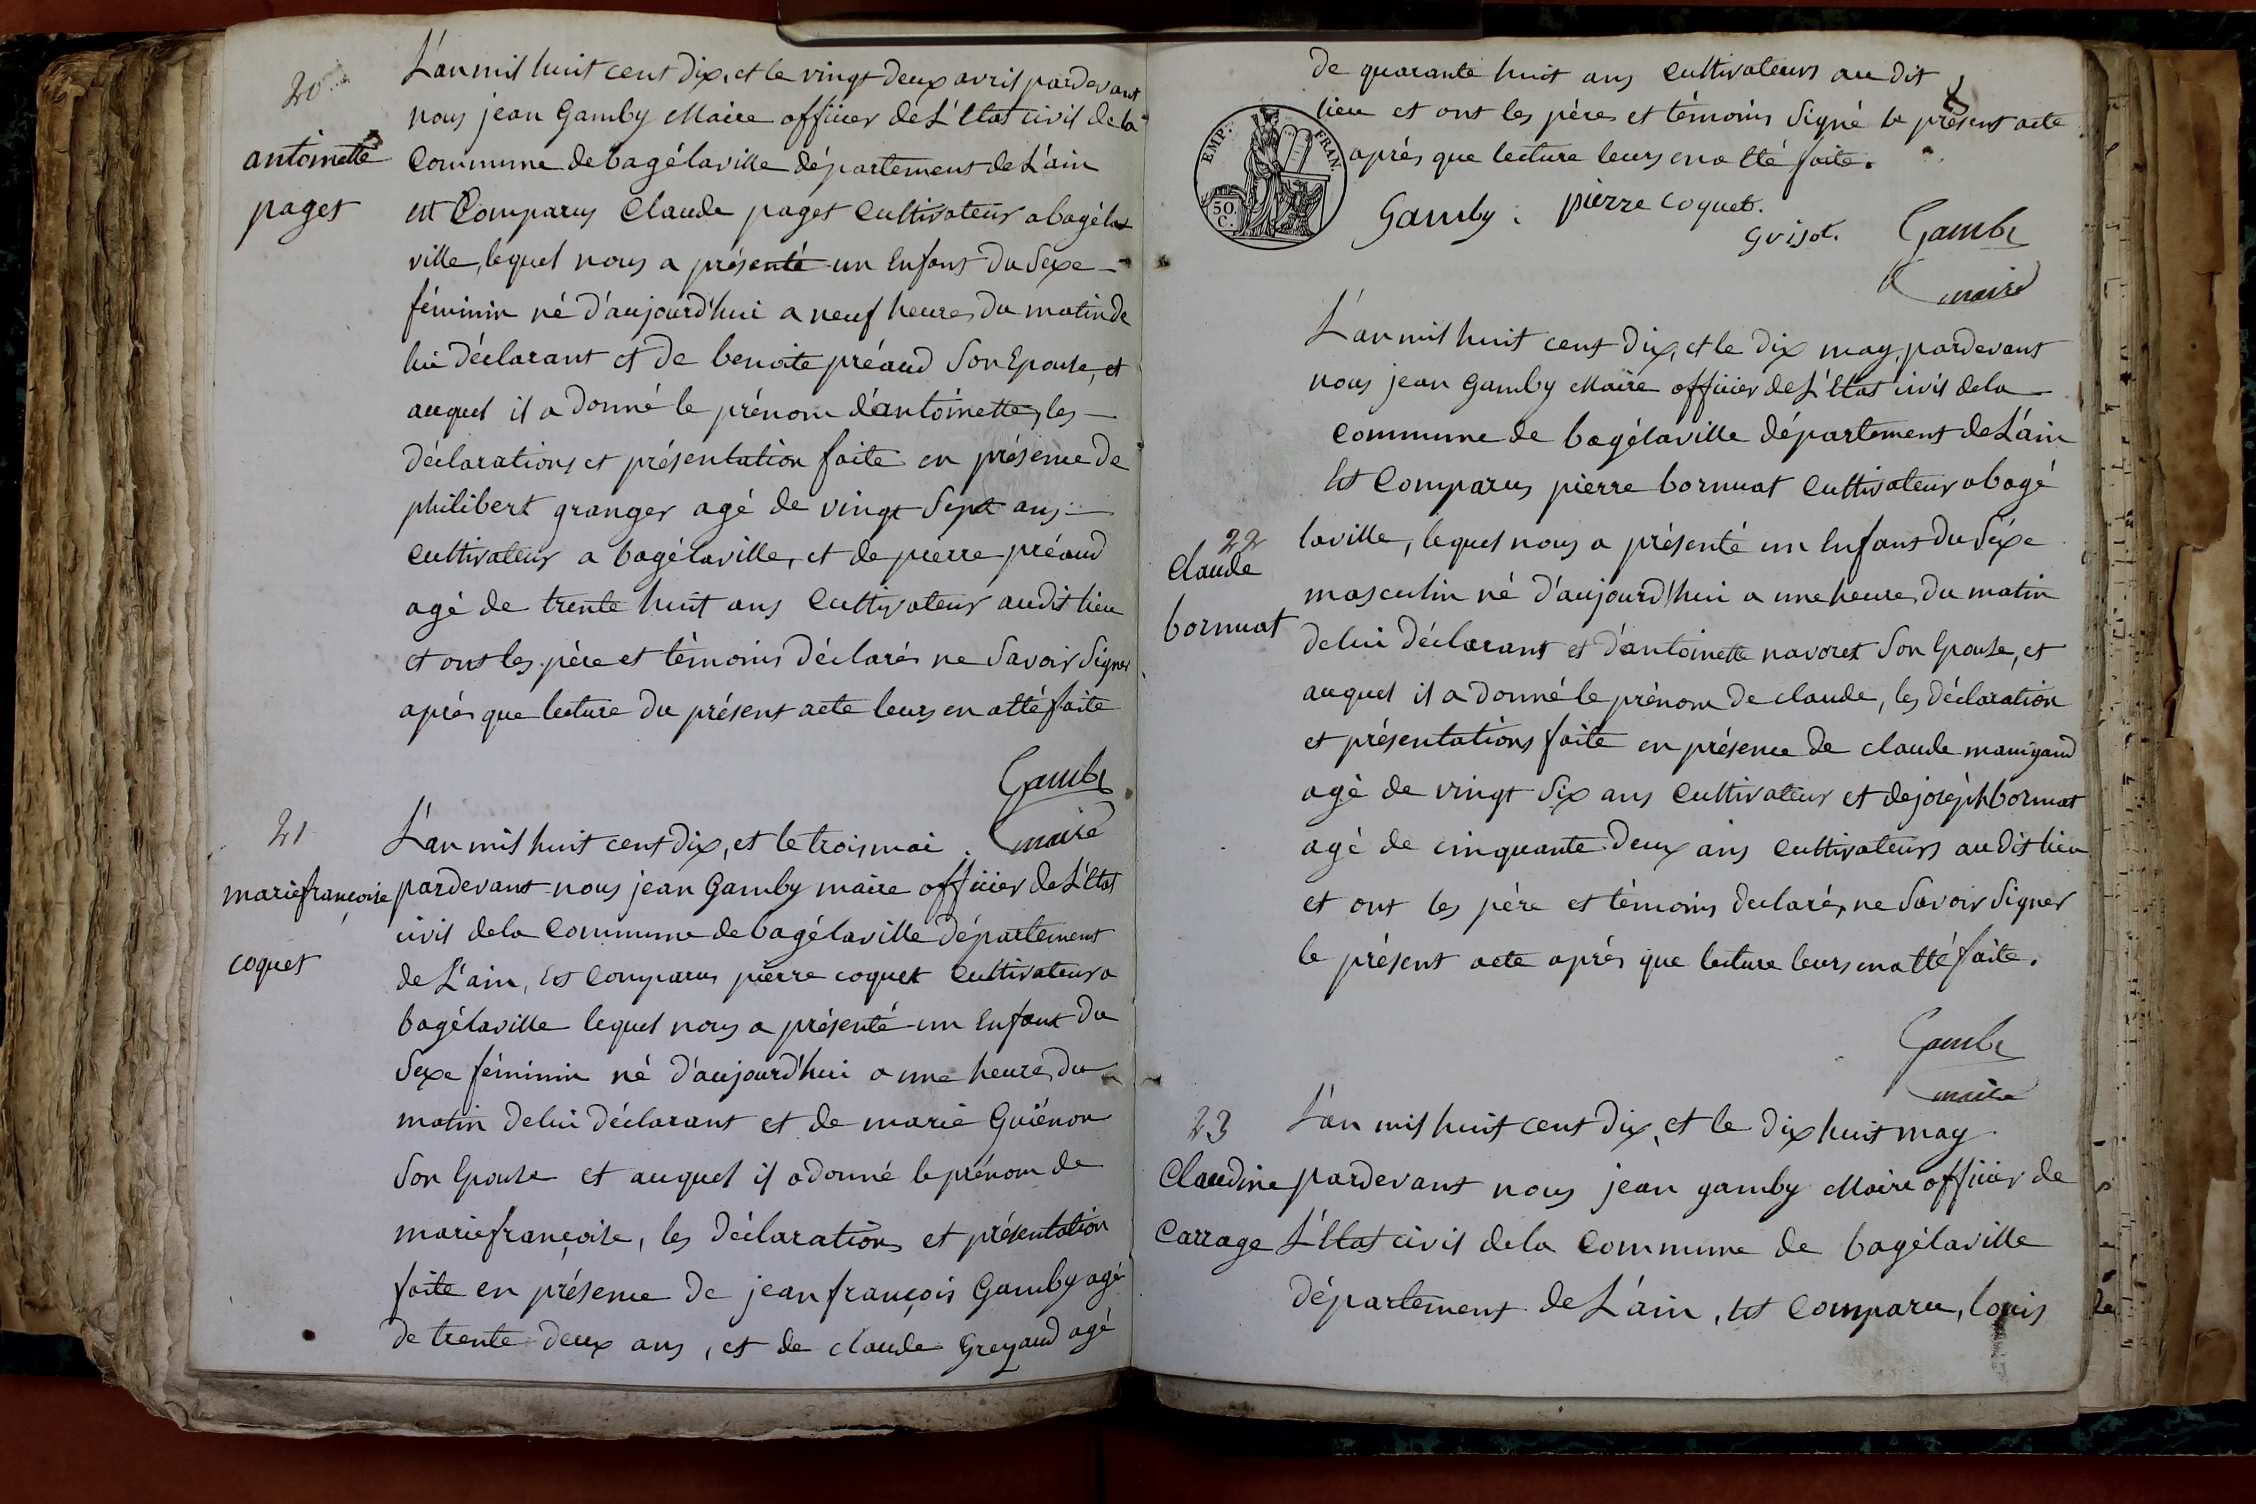 20
antoinette
paget
L'an mil huit cent dix, et le vingt deux avril pardevant
nous jean Gamby Maire officier de L'Etat civil de la
Commune de bagélaville département de L'ain
est Comparus Claude paget Cultivateur a bagéla
ville, lequel nous a présenté un Enfant du Sexe
féminin né d'aujourd'hui a neuf heures du matin de
lui déclarant et de benoite préaud Son Epouse, et
auquel il a donné le prénom d'antoinette, les
déclarations et présentation faite en présence de
philibert granger agé de vingt Sept ans
Cultivateur a bagélaville, et de pierre préaud
agé de trente huit ans Cultivateur audit lieu
et ont les père et témoins déclarés ne Savoir Signer
après que lecture du présent acte leurs en a Eté faite
Gambi
maire
21
mariefrançoise
coquet
L'an mil huit cent dix, et le trois mai
pardevant nous jean Gamby maire officier de L'Etat
civil de la Commune de bagélaville département
de L'ain, Est Comparus pierre coquet Cultivateur a
bagélaville lequel nous a présenté un Enfant du
Sexe féminin né d'aujourd'hui a une heure du
matin de lui déclarant et de marie Guiénon
Son Epouse et auquel il a donné le prénom de
mariefrançoise, les déclarations et présentation
faite en présence de jean françois Gamby agé
de trente deux ans, et de claude Greyaud agé
de quarante huit ans Cultivateurs au dit
lieu et ont les père et témoins Signé le présent acte
après que lecture leurs en a Eté faite.
EMP. FRAN.
50
C.
Gamby. pierre coquet.
Guisot. Gambi
maire
22
Claude
bornuat
L'an mil huit cent dix, et le dix may, pardevant
nous jean Gamby Maire officier de L'Etat civil de la
Commune de bagélaville département de L'ain
Est Comparus pierre bornuat Cultivateur a bagé
laville, lequel nous a présenté un Enfant du Séxe
masculin né d'aujourd'hui a une heure du matin
de lui déclarant et d'antoinette navoret Son Epouse, et
auquel il a donné le prénom de claude, les déclaration
et présentations faite en présence de claude manigand
agé de vingt Six ans Cultivateur et de joséph bornuat
agé de cinquante deux ans Cultivateurs au dit lieu
et ont les père et témoins déclarés ne Savoir Signer
le présent acte après que lecture leurs en a Eté faite.
Gambi
maire
23
Claudine
Carrage
L'an mil huit cent dix, et le dix huit may
pardevant nous jean gamby Maire officier de
L'Etat civil de la Commune de bagélaville
département de L'ain, Est Comparu, louis